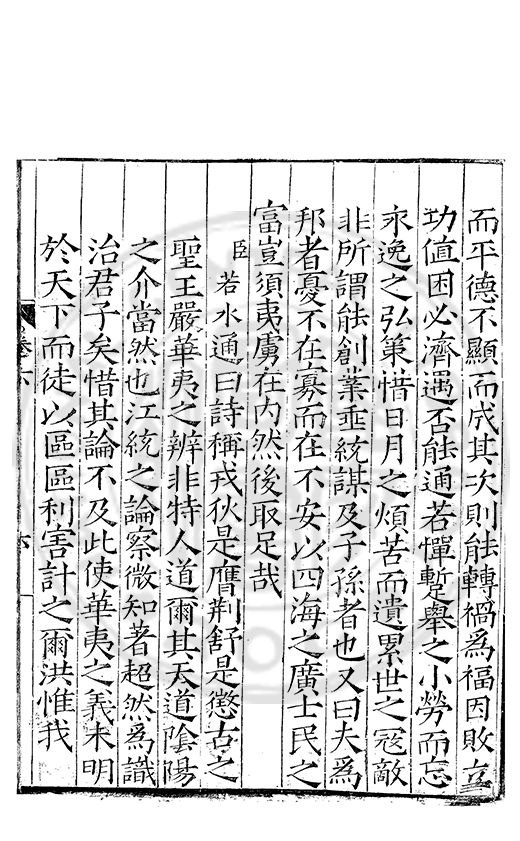 而平德不顯而成其次則能轉禍爲福因敗立
功值困必濟遇否能通若憚蹔舉之小勞而忘
永逸之弘策惜日月之煩苦而遺累世之寇敵
非所謂能創業垂統謀及子孫者也又曰夫爲
邦者憂不在寡而在不安以四海之廣士民之
富豈須夷虜在内然後取足哉
臣若水通曰詩稱戎狄是膺荆舒是懲古之
聖王嚴華夷之辨非特人道爾其天道隂陽
之介當然也江統之論察微知著超然爲識
治君子矣惜其論不及此使華夷之義未明
於天下而徒以區區利害計之爾洪惟我
卷六
六